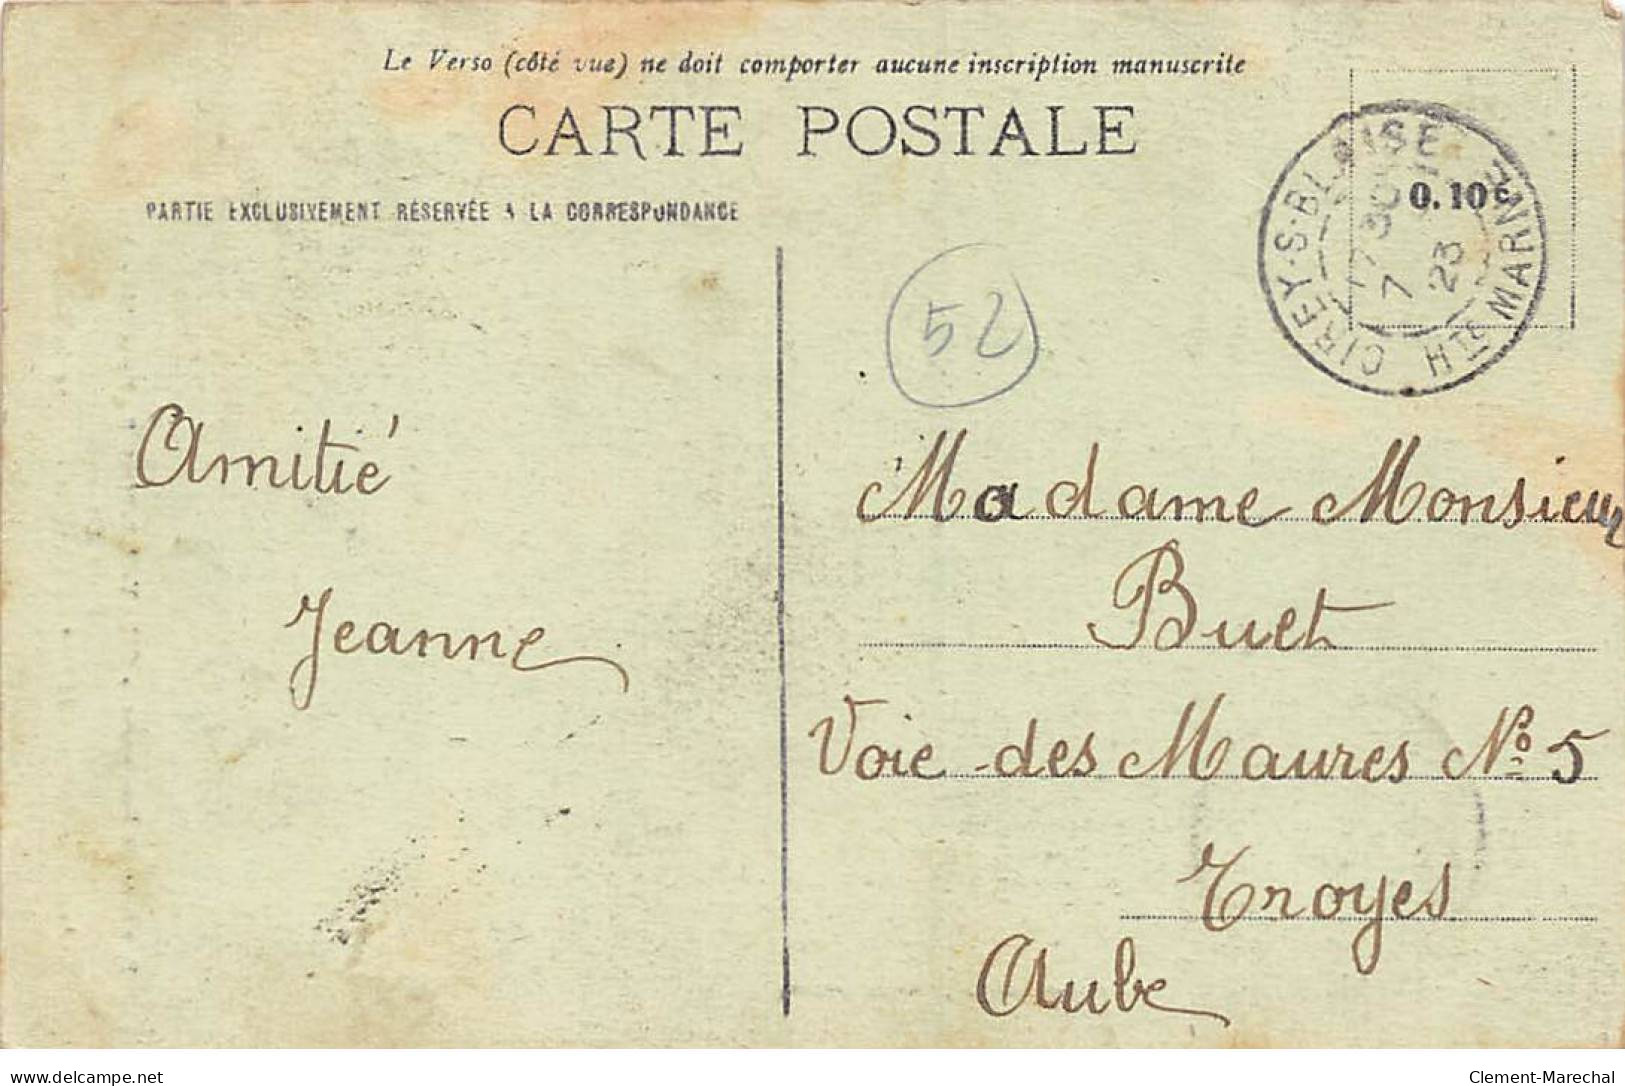 Le Verso (côté vue) ne doit comporter aucune inscription manuscrite
CARTE POSTALE
PARTIE EXCLUSIVEMENT RÉSERVÉE A LA CORRESPONDANCE
0.10 c
CIREY-S-BLAISE
Hte MARNE
17 30
7
23
52
Amitié
Jeanne
Madame Monsieur
Buet
Voie des Maures No 5
Troyes
Aube
www.delcampe.net
Clement-Marechal